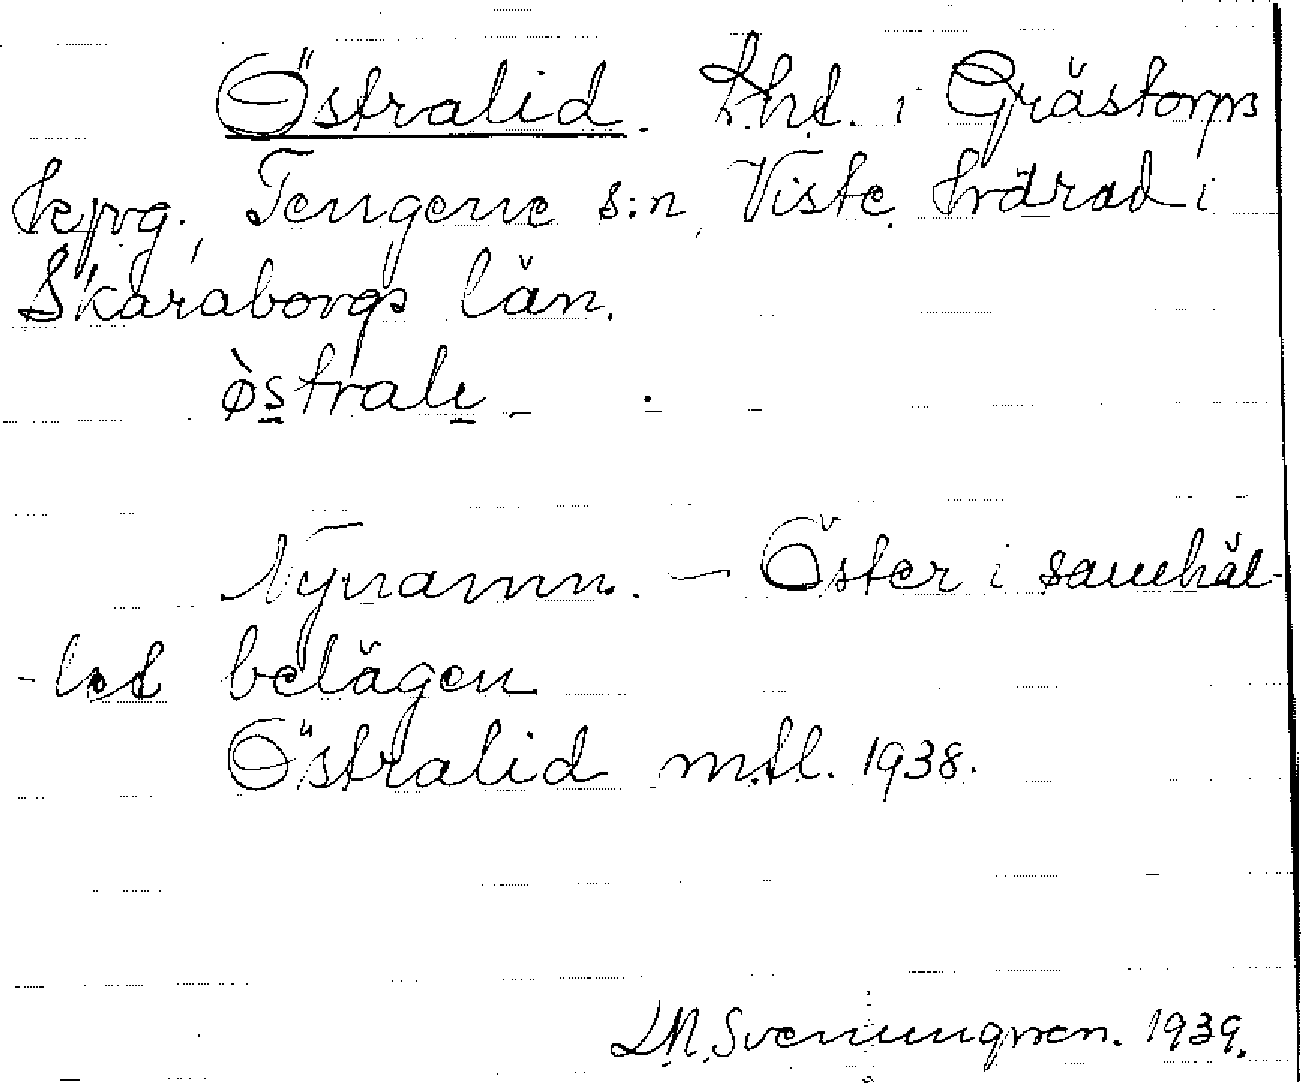 Östralid. Lht. i Grästorps
kpg., Tengene s:n, Viste härad i
Skaraborgs län.
òstralı
Nynamn. – Öster i samhäl-
-let belägen
Östralid mtl. 1938.
Svenungsson. 1939.